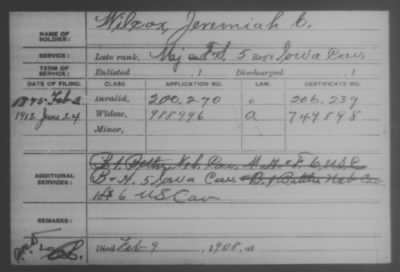 NAME OF SOLDIER: Wilcox, Jeremiah C.
SERVICE: Late rank, Maj F.S, 5 Reg't Iowa Cav.
TERM OF SERVICE: Enlisted , 1 Discharged , 1
DATE OF FILING. CLASS APPLICATION NO. LAW. CERTIFICATE NO.
Feb 3 Invalid, 200.270 c 206.239
1912 June 24 Widow, 988996 a 749898
Minor,
Neb. Cav. 6 U.S.C
ADDITIONAL SERVICES: B + H. 5 Iowa Cav. Neb Cav.
6 US Cav
REMARKS:
Died Feb 9 , 1908, at